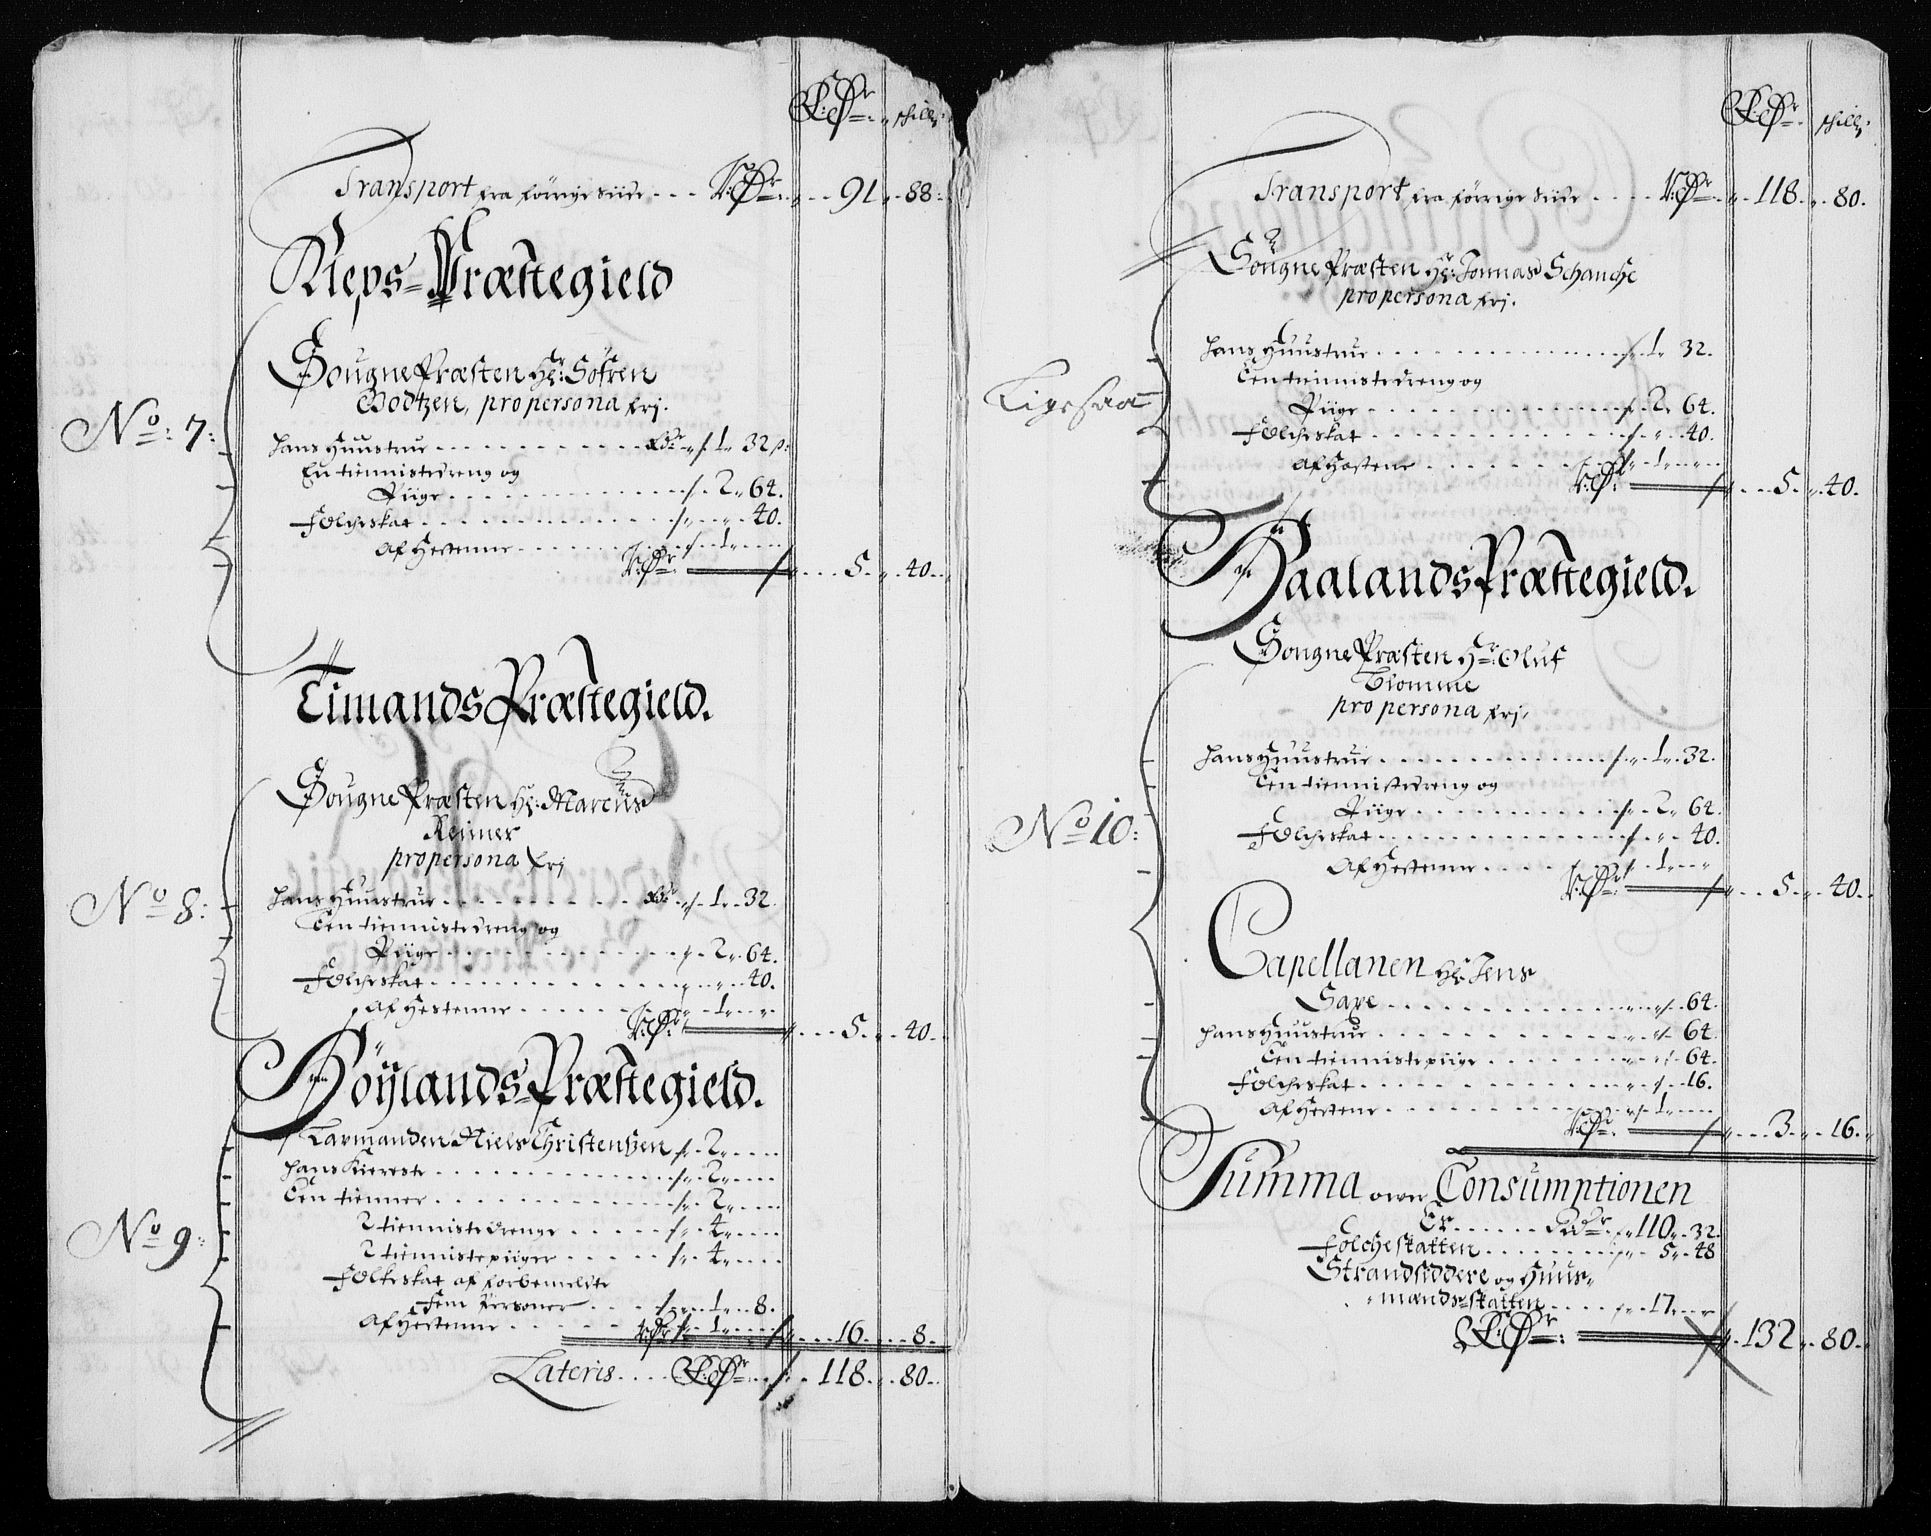 schill:
Transport fra förrige Siide . . . . 91 . 88 .
Kleps-Præstegield
Sougne Præsten Hr: Söfren
Bodtzen, pro persona fri.
No: 7:
Hans Huustrue . . . 1 . 32 ß:
En tiennistedreng og
Piige . . . 2 . 64.
Folcheskat . . . 40.
Af Hestene . . . 1 . . .
5 . 40 .
Timands Præstegield.
Sougne Præsten Hr: Marcus
Reimer
pro persona fri
No 8:
Hans Huustrue . . . 1 . 32.
Een tiennistedreng og
Piige . . . 2 . 64.
Folcheskat . . . 40.
Af Hestenne . . . 1 . . .
5 . 40 .
Höÿlands Præstegield.
Lavmanden Niels Christenßen . 2 . . .
Hans Kiereste . . . 2 . . .
Een tienner . . . 2 . . .
2 tiennistedrenge . . . 4 . . .
2 tiennistepiiger . . . 4 . . .
No 9:
Folkeskat af forbemelte
Fem Personer . . . 1 . 8.
Af Hestenne . . . 1 . . .
16 . 8 .
Lateris . . . 118 . 80 .
schill:
Transport fra förrige Siide . . . . 118 . 80 .
Sougne Præsten Hr: Jonnas Schanche
pro persona fri.
Hans Huustrue . . . 1 . 32.
Een tiennistedreng og
Ligesaa
Piige . . . 2 . 64.
Folcheskat . . . 40.
Af Hæstene . . . 1 . . .
5 . 40 .
Haalands Præstegield.
Sougne Præsten Hr: Oluf
Blomme
pro persona fri,
Hans Huustrue . . . 1 . 32.
Een tiennistedreng og
Piige . . . 2 . 64.
No 10:
Folcheskat . . . 40.
Af Hestenne . . . 1 . . .
5 . 40 .
Capellanen Hr: Jens
Saxe . . . 64.
Hans Huustrue . . . 64.
Een tiennistepiige . . . 64.
Folcheskat . . . 16.
Af Hestene . . . 1 . . .
3 . 16 .
Summa over Consumptionen
Er . . . 110 . 32.
Folcheskatten . . . 5 . 48
Strandsiddere og Huus-
mands-skatten . . . 17 . . .
132 . 80 .